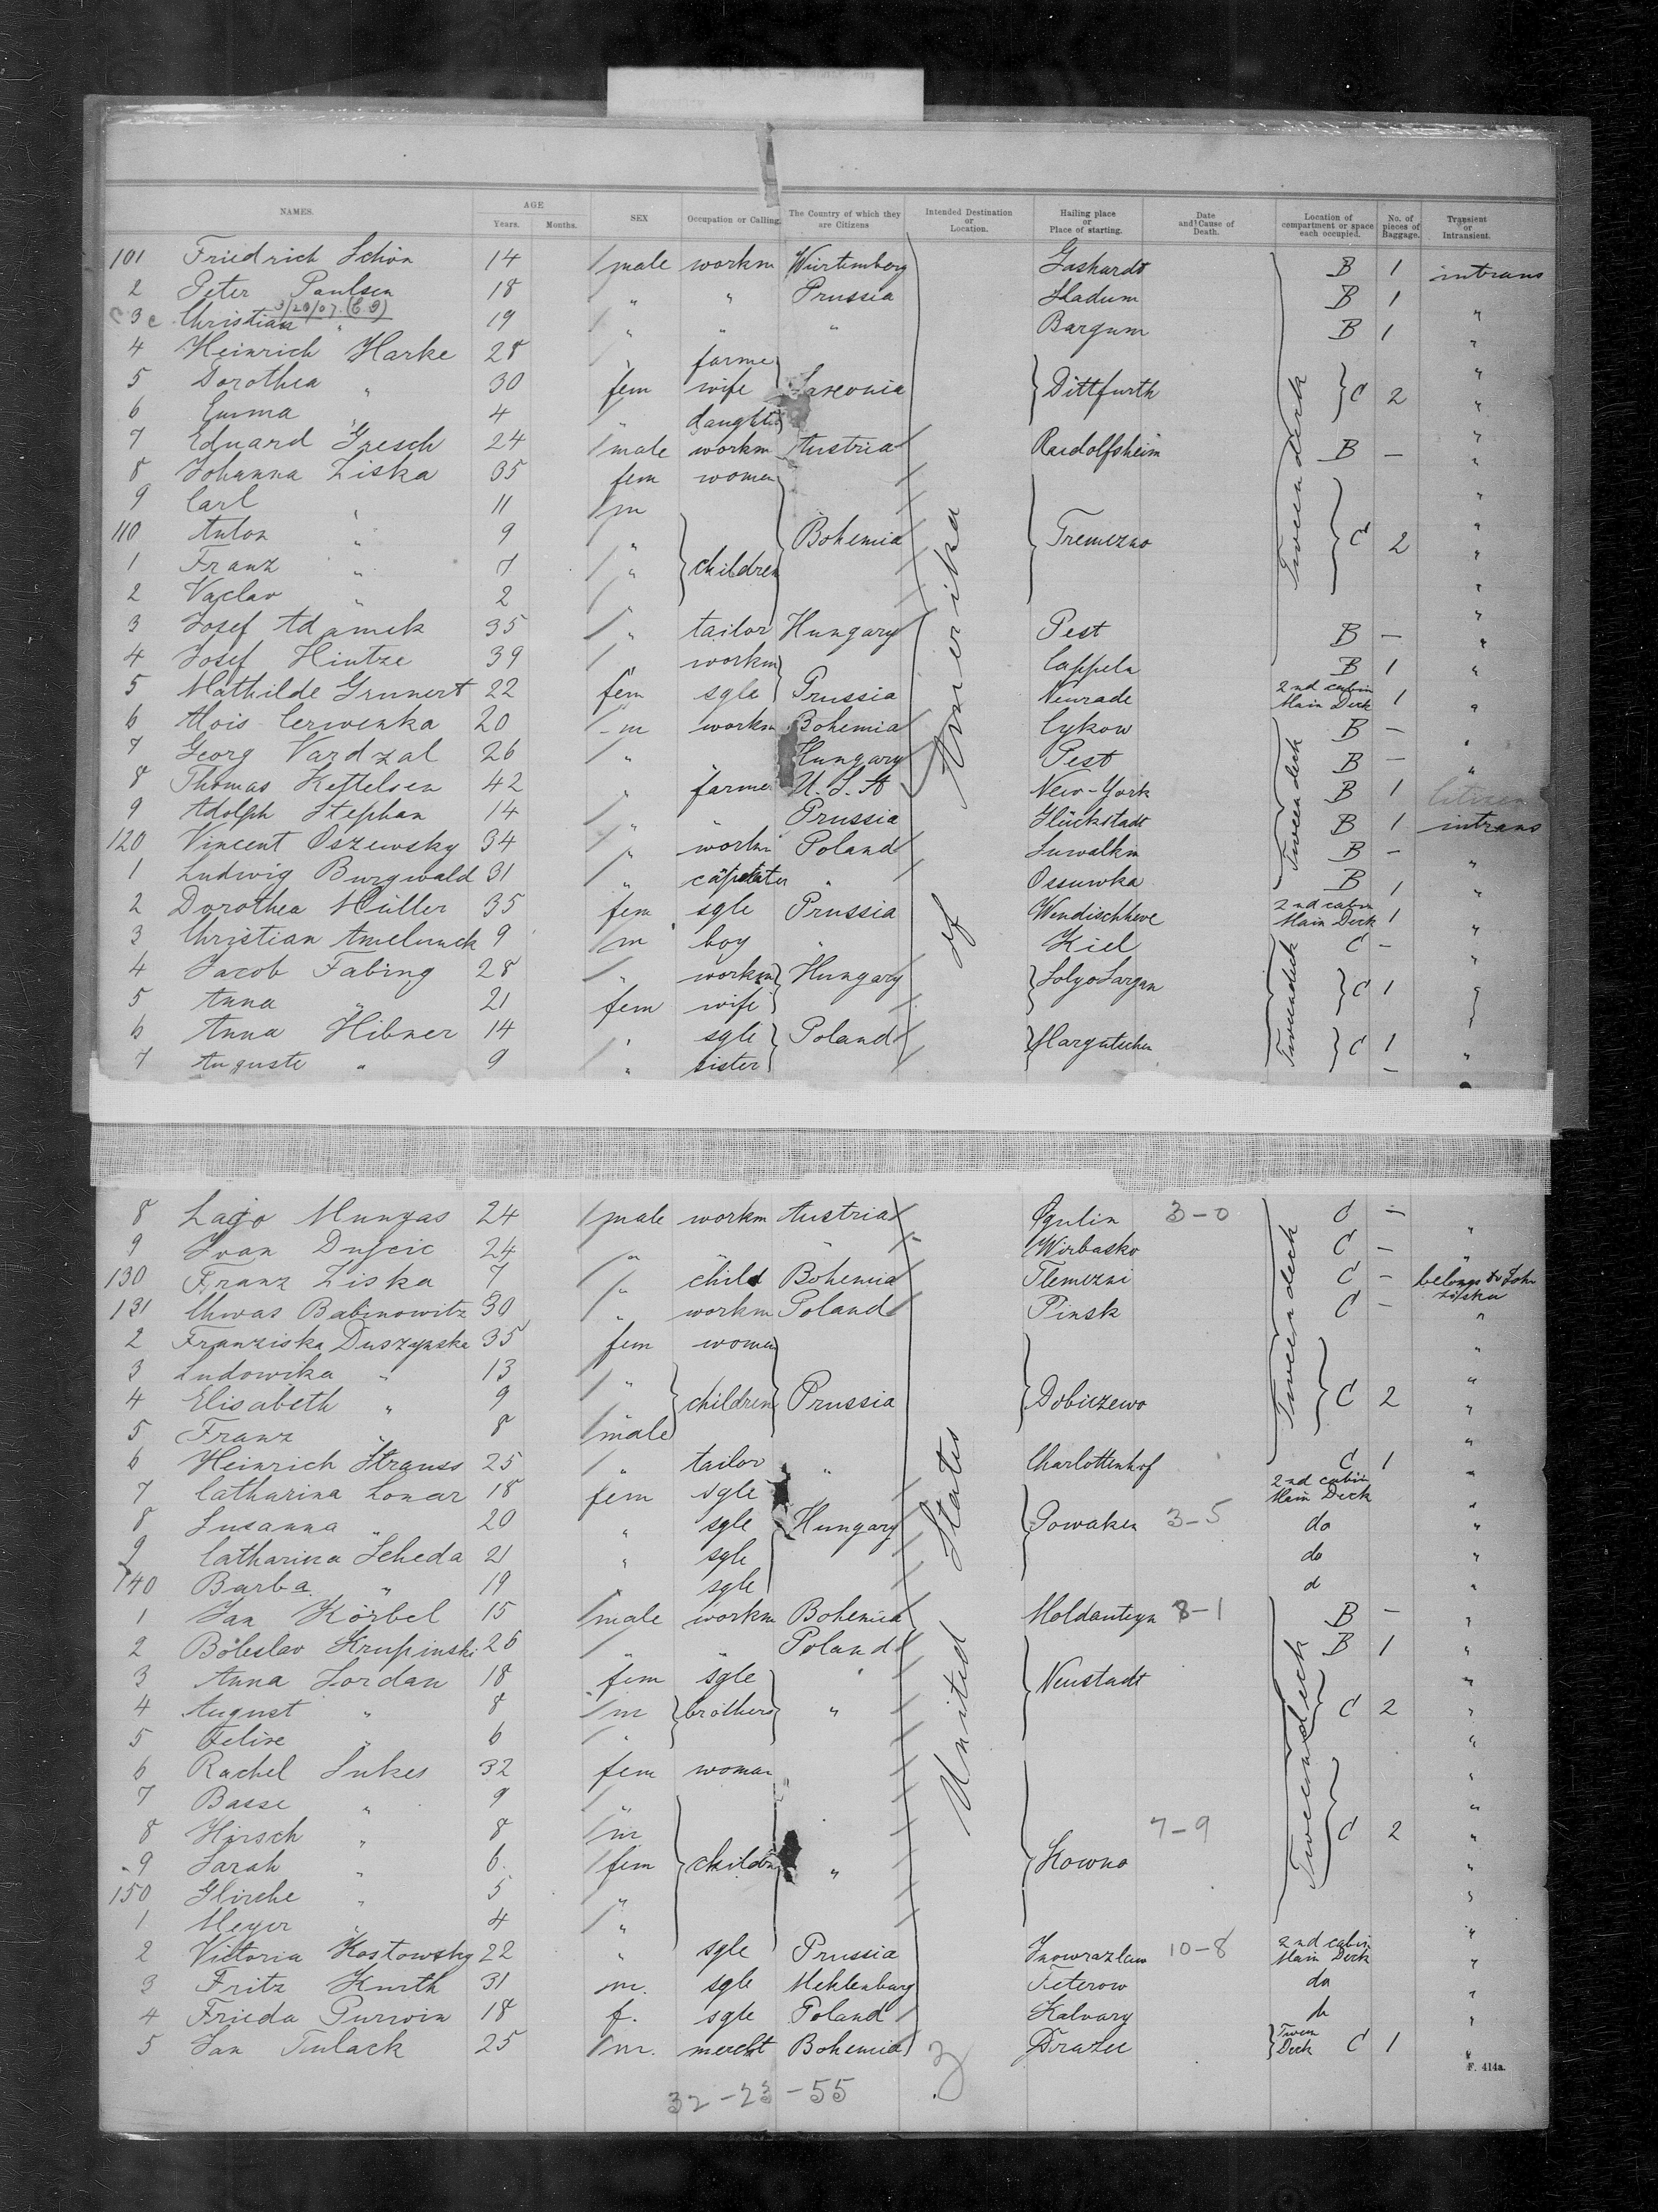 NAMES. AGE Years. Months. SEX Occupation or Calling. The Country of which they are Citizens Intended Destination or Location. Hailing place or Place of starting. Date and Cause of Death. Location of compartment or space each occupied. No. of pieces of Baggage. Transient or Intransient.
101 Friedrich Schön 14 male workm Würtemberg B 1 intrans
2 Peter Paulsen 18 " " Prussia Hadum B 1 "
3/20/07. (E I)
3 Christian " 19 " " " Bargum B 1 "
4 Heinrich Harke 28 " farmer "
5 Dorothea " 30 fem wife Saxonia Dittfurth C 2 "
6 Emma " 4 " daughter "
7 Eduard Gresch 24 male workm Austria Rudolfsheim B — "
8 Johanna Ziska 35 fem women "
9 Carl " 11 m "
110 Anton " 9 " Bohemia Tremezno C 2 "
1 Franz " 7 " children "
2 Vaclav " 2 " "
3 Josef Adamek 35 " tailor Hungary Pest B — "
4 Josef Hintze 39 workm Cappeln B 1 "
5 Mathilde Grunert 22 fem sgle Prussia Neurade 2nd cabin Main Deck 1 "
6 Alois Cerwenka 20 m workm Bohemia Cykow B — "
7 Georg Vardzal 26 " Hungary Pest B — "
8 Thomas Kettelsen 42 " farmer U. S. A New-York B 1 Citizen
9 Adolph Stephan 14 " " Prussia Glückstadt B 1 intrans
120 Vincent Oszewsky 34 " workm Poland Suwalkin B — "
1 Ludwig Burgwald 31 " " Ossuwka B 1 "
2 Dorothea Müller 35 fem sgle Prussia 2nd cabin Main Deck 1 "
3 Christian Amelunck 9 m boy " Kiel C — "
4 Jacob Fabing 28 " workm Hungary C 1
5 Anna " 21 fem wife
6 Anna Hibner 14 " sgle Poland C 1 "
7 Auguste " 9 " sister —
Tween deck
United States of Amerika
8 Lajo Mungas 24 male workm Austria Ogulin 3-0 C — "
9 Ivan Dujcic 24 " " " Wirbasko C — "
130 Franz Ziska 7 " child Bohemia Tlemezni C — belongs to Joh Ziska
131 Chwas Babinowitz 30 " workm Poland Pinsk C — "
2 Franziska Duszynska 35 fem women "
3 Ludowika " 13 " "
4 Elisabeth " 9 children Prussia Dobiczewo C 2 "
5 Franz " 8 male "
6 Heinrich Strauss 25 " tailor " Charlottenhof C 1 "
7 Catharina Lonar 18 fem sgle 2nd cabin Main Deck "
8 Susanna " 20 " sgle Hungary 3-5 do "
9 Catharina Scheda 21 " sgle do "
140 Barba " 19 " sgle d "
1 Jan Körbel 15 male workm Bohemia Moldauteyn 3-1 B — "
2 Boleslav Krupinski 26 " " Poland B 1 "
3 Anna Jordan 18 fem sgle " Neustadt "
4 August " 8 m brothers " C 2 "
5 Felixe " 6 " "
6 Rachel Sukes 32 fem woman "
7 Basse " 9 " "
8 Hirsch " 8 m 7-9 C 2 "
9 Sarah " 6 fem children " Kowno "
150 " 5 " "
1 Meyer " 4 " "
2 Victoria Kostowsky 22 " sgle Prussia Inowrazlaw 10-8 2nd cabin Main Deck "
3 Fritz Kurth 31 m. sgle Meklenburg Teterow do "
4 Frieda Purwin 18 f. sgle Poland Kalvary do "
5 Jan Tulack 25 m. mercht Bohemia Drazec Tween Deck C 1 "
F. 414a.
32-23-55